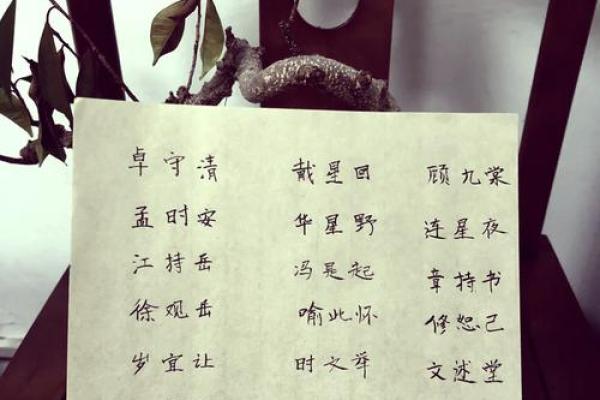 卓守清 戴星回 顾九棠
孟时安 华星野 连星夜
江持岳 冯吴起 章持书
徐观岳 喻此怀 修恕己
岁宜让 时之举 文述堂